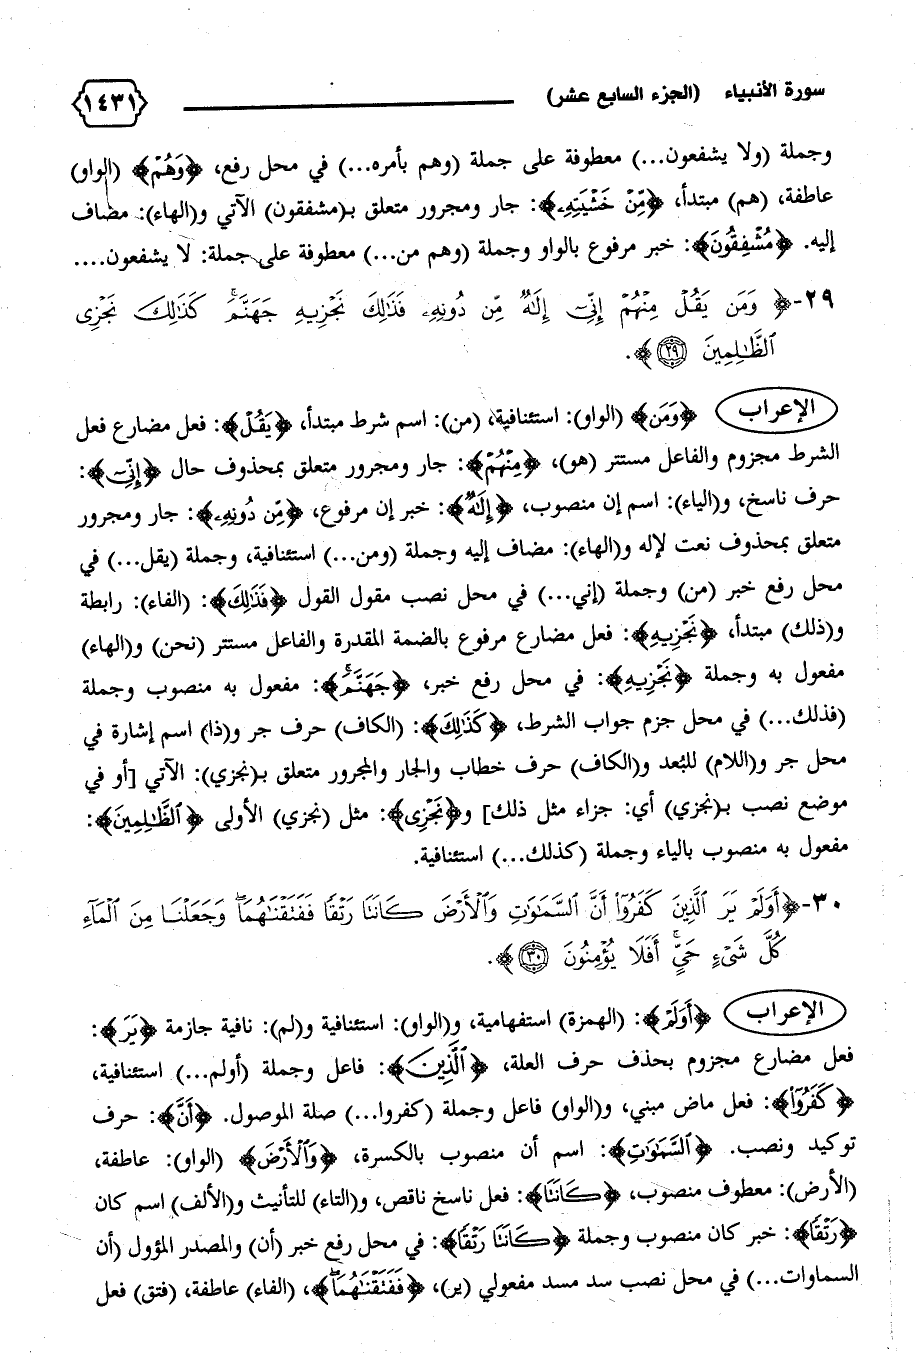 سورة الأنبياء (الجزء السابع عشر) ١٤٣١
وجملة (ولا يشفعون...) معطوفة على جملة (وهم بأمره...) في محل رفع، ﴿وَهُم﴾ (الواو)
عاطفة، (هم) مبتدأ، ﴿مِّنْ خَشْيَتِهِۦ﴾: جار ومجرور متعلق بـ(مشفقون) الآتي و(الهاء): مضاف
إليه. ﴿مُشْفِقُونَ﴾: خبر مرفوع بالواو وجملة (وهم من...) معطوفة على جملة: لا يشفعون....
٢٩-﴿ وَمَن يَقُلْ مِنْهُمْ إِنِّىٓ إِلَٰهٌ مِّن دُونِهِۦ فَذَٰلِكَ نَجْزِيهِ جَهَنَّمَ ۚ كَذَٰلِكَ نَجْزِى
ٱلظَّٰلِمِينَ ٢٩ ﴾.
الإعراب ﴿وَمَن﴾ (الواو): استئنافية، (من): اسم شرط مبتدأ، ﴿يَقُلْ﴾: فعل مضارع فعل
الشرط مجزوم والفاعل مستتر (هو)، ﴿مِنْهُمْ﴾: جار ومجرور متعلق بمحذوف حال ﴿إِنِّىٓ﴾:
حرف ناسخ، و(الياء): اسم إن منصوب، ﴿إِلَٰهٌ﴾: خبر إن مرفوع، ﴿مِّن دُونِهِۦ﴾: جار ومجرور
متعلق بمحذوف نعت لإله و(الهاء): مضاف إليه وجملة (ومن...) استئنافية، وجملة (يقل...) في
محل رفع خبر (من) وجملة (إني...) في محل نصب مقول القول ﴿فَذَٰلِكَ﴾: (الفاء): رابطة
و(ذلك) مبتدأ، ﴿نَجْزِيهِ﴾: فعل مضارع مرفوع بالضمة المقدرة والفاعل مستتر (نحن) و(الهاء)
مفعول به وجملة ﴿نَجْزِيهِ﴾: في محل رفع خبر، ﴿جَهَنَّمَ ۚ﴾: مفعول به منصوب وجملة
(فذلك...) في محل جزم جواب الشرط، ﴿كَذَٰلِكَ﴾: (الكاف) حرف جر و(ذا) اسم إشارة في
محل جر و(اللام) للبُعد و(الكاف) حرف خطاب والجار والمجرور متعلق بـ(نجزي): الآتي [أو في
موضع نصب بـ(نجزي) أي: جزاء مثل ذلك] و﴿نَجْزِى﴾: مثل (نجزي) الأولى ﴿ٱلظَّٰلِمِينَ﴾:
مفعول به منصوب بالياء وجملة (كذلك...) استئنافية.
٣٠-﴿أَوَلَمْ يَرَ ٱلَّذِينَ كَفَرُوٓا۟ أَنَّ ٱلسَّمَٰوَٰتِ وَٱلْأَرْضَ كَانَتَا رَتْقًا فَفَتَقْنَٰهُمَا ۖ وَجَعَلْنَا مِنَ ٱلْمَآءِ
كُلَّ شَىْءٍ حَىٍّ ۖ أَفَلَا يُؤْمِنُونَ ٣٠ ﴾.
الإعراب ﴿أَوَلَمْ﴾: (الهمزة) استفهامية، و(الواو): استئنافية و(لم): نافية جازمة ﴿يَرَ﴾:
فعل مضارع مجزوم بحذف حرف العلة، ﴿ٱلَّذِينَ﴾: فاعل وجملة (أولم...) استئنافية،
﴿كَفَرُوٓا۟﴾: فعل ماض مبني، و(الواو) فاعل وجملة (كفروا...) صلة الموصول. ﴿أَنَّ﴾: حرف
توكيد ونصب. ﴿ٱلسَّمَٰوَٰتِ﴾: اسم أن منصوب بالكسرة، ﴿وَٱلْأَرْضَ﴾ (الواو): عاطفة،
(الأرض): معطوف منصوب، ﴿كَانَتَا﴾: فعل ناسخ ناقص، و(التاء) للتأنيث و(الألف) اسم كان
﴿رَتْقًا﴾: خبر كان منصوب وجملة ﴿كَانَتَا رَتْقًا﴾: في محل رفع خبر (أن) والمصدر المؤول (أن
السماوات...) في محل نصب سد مسد مفعولي (ير)، ﴿فَفَتَقْنَٰهُمَا ۖ﴾، (الفاء) عاطفة، (فتق) فعل